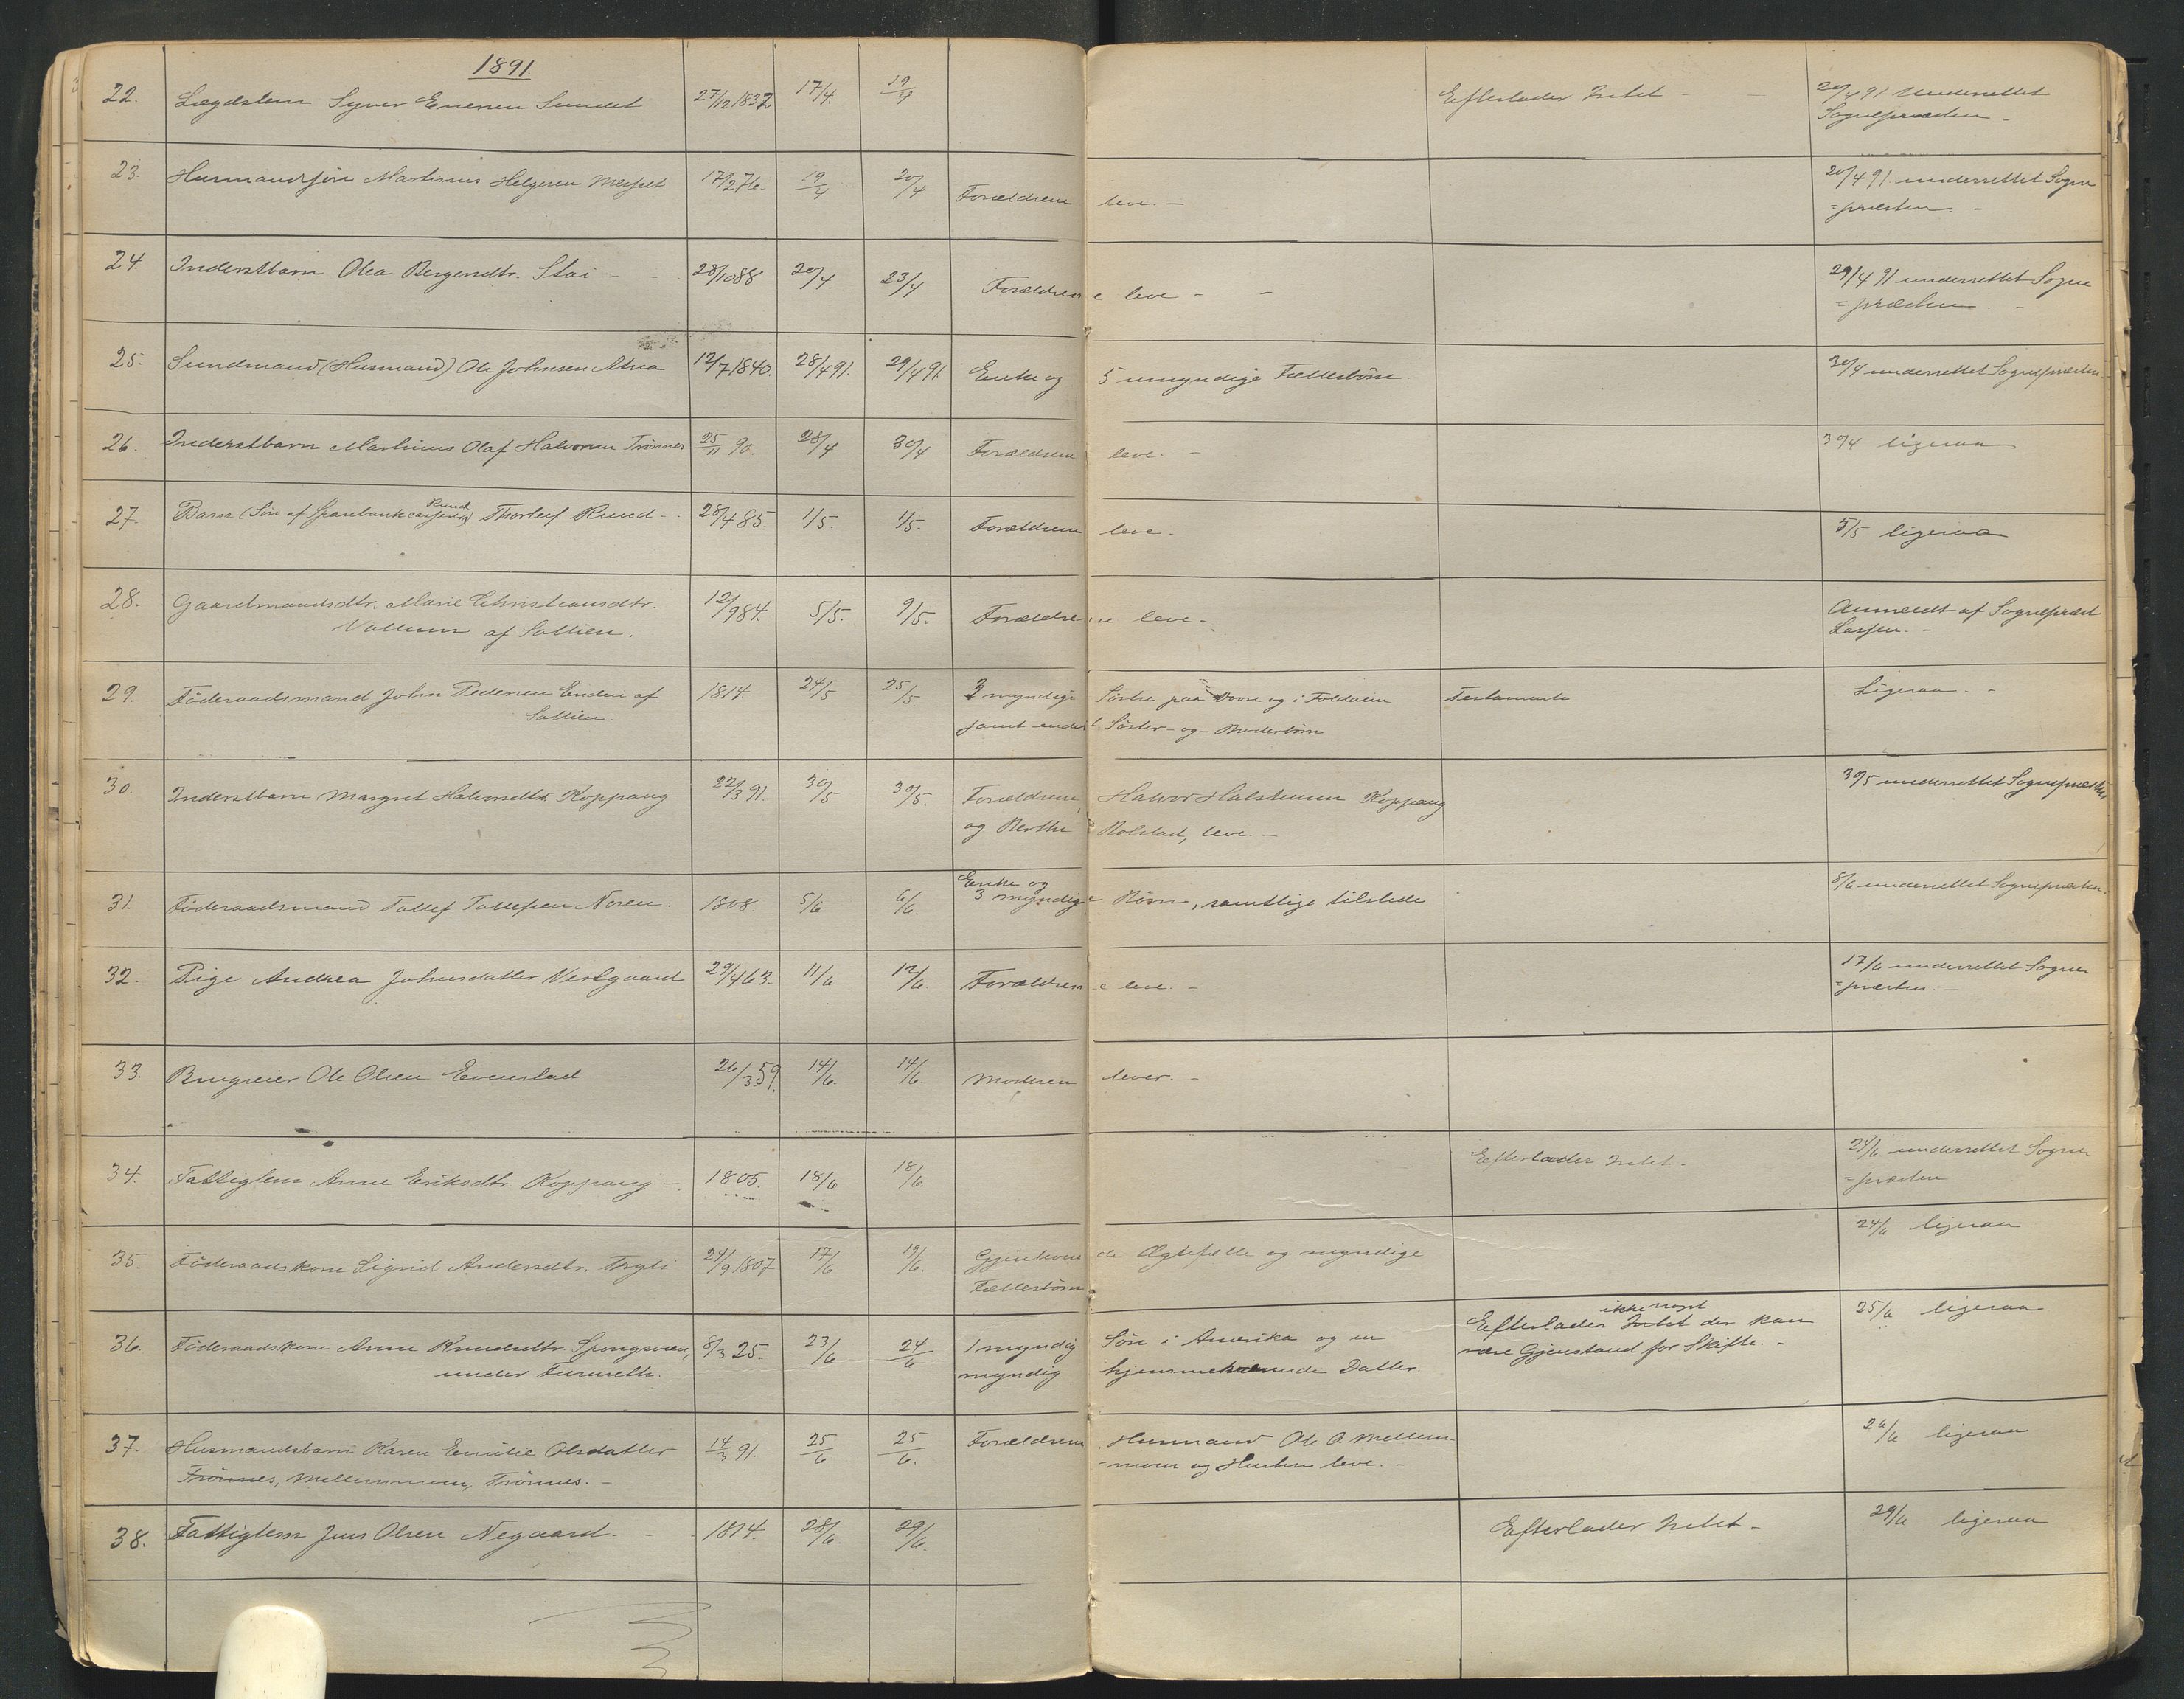 1891.
22. Lægdslem Syver Enersen Sundet 27/12 1837 17/4. 19/4 Efterlader Intet - 20/4 91 Underrettet
Sognepræsten -
23. Husmandssøn Martinus Helgesen 17/2 76. 19/4 20/4 Forældrene leve. - 20/4 91 underrettet Sogne
=præsten -
24. Inderstbarn Olea Bergersdtr. Stai - 28/10 88 20/4. 23/4 Forældrene leve - - 29/4 91 underrettet Sogne
=præsten -
25. Sundmand (Husmand) Ole Johnsen Atna 12/7 1840. 28/4 91. 29/4 91. Enke og 5 umyndige Fællesbørn. 30/4 underrettet Sognepræsten.
26. Inderstbarn Martinus Olaf Halvorsen Trønnes 25/11 90. 28/4 30/4 Forældrene leve. - 30/4 ligesaa
Rund
27. Barn (Søn af Sparebankcasserer) Thorleif Rund - 28/4 85. 1/5. 1/5. Forældrene leve. 5/5 ligesaa
28. Gaardmandsdtr. Marie Christiansdtr. 12/9 84. 5/5. 9/5. Forældrene leve. Anmeldt af Sognepræst
af Sollien. Lassen. -
29. Föderaadsmand John Pedersen Enden af 1814. 24/5 25/5 myndige Søstre paa Dovre og i Foldalen Testamente Ligesaa. -
Sollien. samt endel Søster- og Broderbørn
30. Inderstbarn Margret Halvorsdtr. Koppang 22/3 91. 30/5 30/5. Forældrene, Halvor Halstensen Koppang 30/5 underrettet Sognepræsten
og Berthe Rolstad, leve. -
Enke og
31. Föderaadsmand Tollef Tollefsen Noren. 1808. 5/6 6/6. 3 myndige Börn, samtlige tilstede 8/6 underrettet Sognepræsten.
32. Pige Andrea Johnsdatter Vestgaard 29/4 63. 11/6 12/6. Forældrene leve. - 17/6 underrettet Sogne
=præsten. -
33. Brugeier Ole Olsen Evenstad 26/3 59. 14/6. 14/6 Moderen lever. -
34. Fattiglem Anne Eriksdtr. Koppang - 1805. 18/6 18/6. Efterlader Intet. 24/6 underrettet Sogne
=præsten
35. Föderaadskone Sigrid Andersdtr. Tryli 24/9 1807 17/6 19/6. Gjenlevende Ægtefælle og myndige 24/6 ligesaa
Fællesbörn
ikke noget
36. Föderaadskone Anne Knudsdtr. 8/3 25. 23/6 24/6 1 myndig Søn i Amerika og en Efterlader Intet der kan 25/6 ligesaa
under Furuseth. myndig hjemmeværende Datter. være Gjenstand for Skifte. -
37. Husmandsbarn Karen Emilie Olsdatter 14/3 91. 25/6 25/6. Forældrene, Husmand Ole O. Mellem- 26/6 ligesaa
Trönnes, Mellemmoen, Trönnes. - =moen og Hustru leve. -
38. Fattiglem Jens Olsen Negaard. - 1814. 28/6 29/6. Efterlader Intet - 29/6 ligesaa